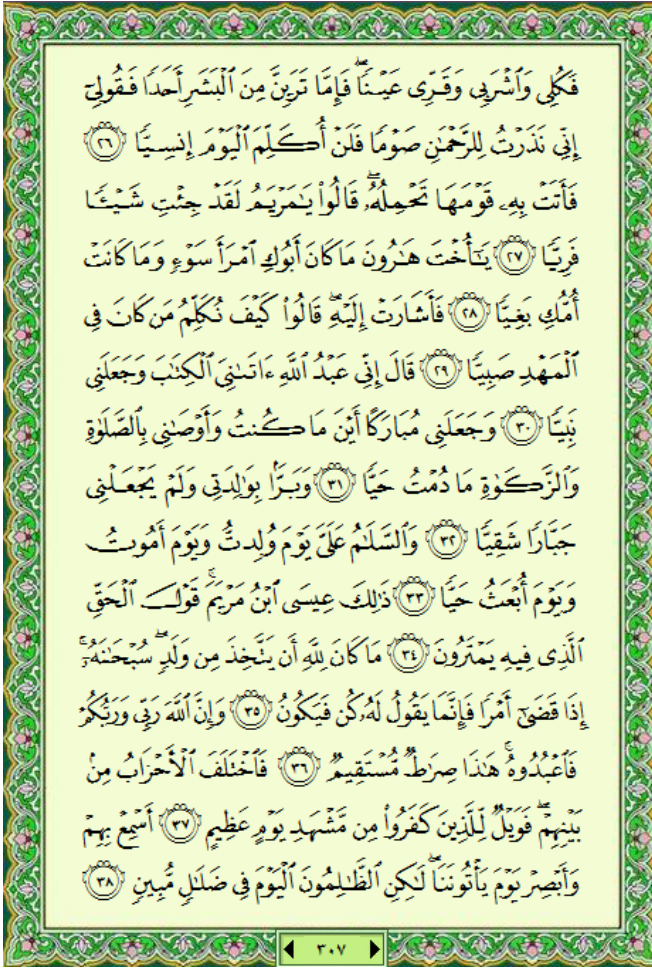 فَكُلِى وَٱشْرَبِى وَقَرِّى عَيْنًۭا ۖ فَإِمَّا تَرَيِنَّ مِنَ ٱلْبَشَرِ أَحَدًۭا فَقُولِىٓ
إِنِّى نَذَرْتُ لِلرَّحْمَٰنِ صَوْمًۭا فَلَنْ أُكَلِّمَ ٱلْيَوْمَ إِنسِيًّۭا ٢٦
فَأَتَتْ بِهِۦ قَوْمَهَا تَحْمِلُهُۥ ۖ قَالُوا۟ يَٰمَرْيَمُ لَقَدْ جِئْتِ شَيْـًۭٔا
فَرِيًّۭا ٢٧ يَٰٓأُخْتَ هَٰرُونَ مَا كَانَ أَبُوكِ ٱمْرَأَ سَوْءٍۢ وَمَا كَانَتْ
أُمُّكِ بَغِيًّۭا ٢٨ فَأَشَارَتْ إِلَيْهِ ۖ قَالُوا۟ كَيْفَ نُكَلِّمُ مَن كَانَ فِى
ٱلْمَهْدِ صَبِيًّۭا ٢٩ قَالَ إِنِّى عَبْدُ ٱللَّهِ ءَاتَىٰنِىَ ٱلْكِتَٰبَ وَجَعَلَنِى
نَبِيًّۭا ٣٠ وَجَعَلَنِى مُبَارَكًا أَيْنَ مَا كُنتُ وَأَوْصَٰنِى بِٱلصَّلَوٰةِ
وَٱلزَّكَوٰةِ مَا دُمْتُ حَيًّۭا ٣١ وَبَرًّۢا بِوَٰلِدَتِى وَلَمْ يَجْعَلْنِى
جَبَّارًۭا شَقِيًّۭا ٣٢ وَٱلسَّلَٰمُ عَلَىَّ يَوْمَ وُلِدتُّ وَيَوْمَ أَمُوتُ
وَيَوْمَ أُبْعَثُ حَيًّۭا ٣٣ ذَٰلِكَ عِيسَى ٱبْنُ مَرْيَمَ ۚ قَوْلَ ٱلْحَقِّ
ٱلَّذِى فِيهِ يَمْتَرُونَ ٣٤ مَا كَانَ لِلَّهِ أَن يَتَّخِذَ مِن وَلَدٍۢ ۖ سُبْحَٰنَهُۥٓ ۚ
إِذَا قَضَىٰٓ أَمْرًۭا فَإِنَّمَا يَقُولُ لَهُۥ كُن فَيَكُونُ ٣٥ وَإِنَّ ٱللَّهَ رَبِّى وَرَبُّكُمْ
فَٱعْبُدُوهُ ۚ هَٰذَا صِرَٰطٌۭ مُّسْتَقِيمٌۭ ٣٦ فَٱخْتَلَفَ ٱلْأَحْزَابُ مِنۢ
بَيْنِهِمْ ۖ فَوَيْلٌۭ لِّلَّذِينَ كَفَرُوا۟ مِن مَّشْهَدِ يَوْمٍ عَظِيمٍ ٣٧ أَسْمِعْ بِهِمْ
وَأَبْصِرْ يَوْمَ يَأْتُونَنَا ۖ لَٰكِنِ ٱلظَّٰلِمُونَ ٱلْيَوْمَ فِى ضَلَٰلٍۢ مُّبِينٍۢ ٣٨
٣٠٧